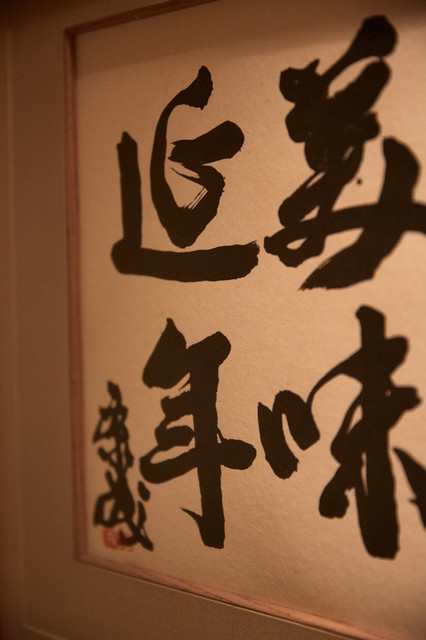 美味
延年